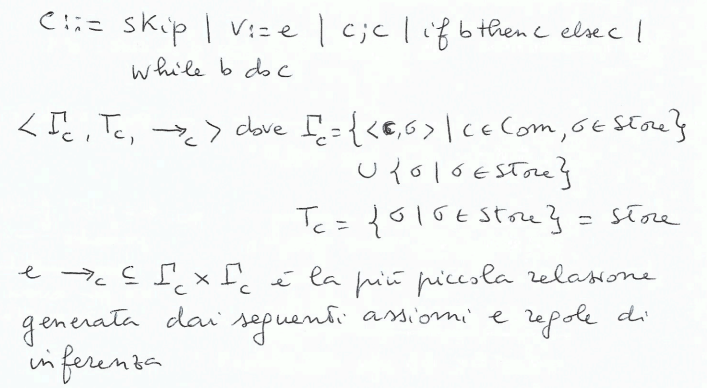 C::= skip | v:=e | c;c | if b then c else c |
while b do c
< Γc, Tc, →c > dove Γc = {<c,σ> | c ∈ Com, σ ∈ Store}
∪ {σ | σ ∈ Store}
Tc = {σ | σ ∈ Store} = Store
e →c ⊆ Γc × Γc è la più piccola relazione
generata dai seguenti assiomi e regole di
inferenza